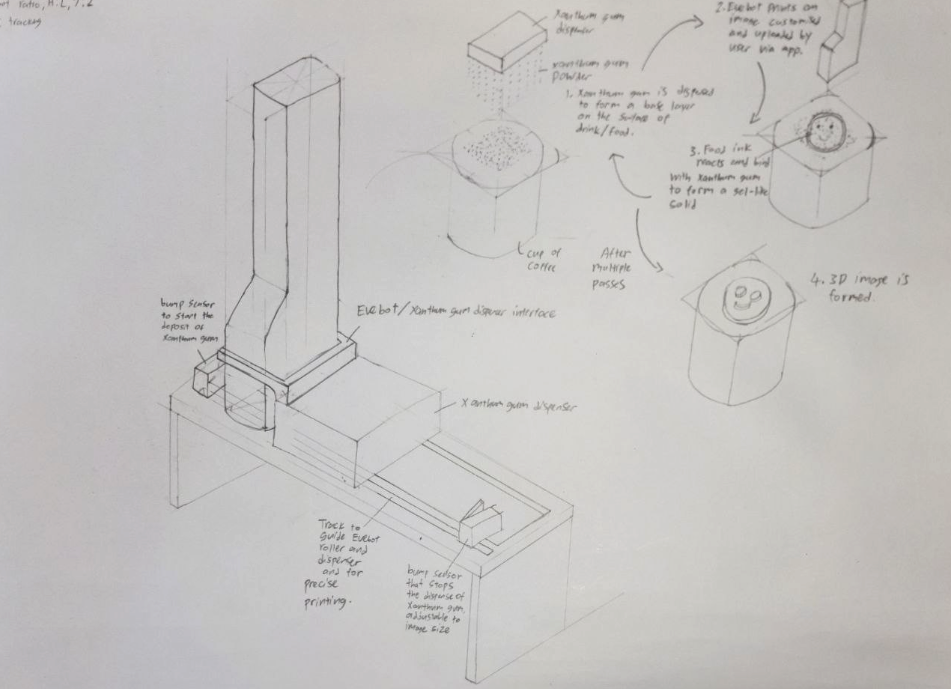 tracking
Xanthum gum
dispenser
xanthum gum
powder
1. Xanthum gum is dispensed
to form a base layer
on the surface of
drink/food.
2. Evebot prints an
image customised
and uploaded by
user via app.
3. Food ink
reacts and bind
with xanthum gum
to form a gel-like
solid
cup of
coffee
After
multiple
passes
4. 3D image is
formed.
bump sensor
to start the
deposit of
xanthum gum
Evebot/xanthum gum dispenser interface
Xanthum gum dispenser
Track to
guide Evebot
roller and
dispenser
and for
precise
printing.
bump sensor
that stops
the dispense of
xanthum gum,
adjustable to
image size